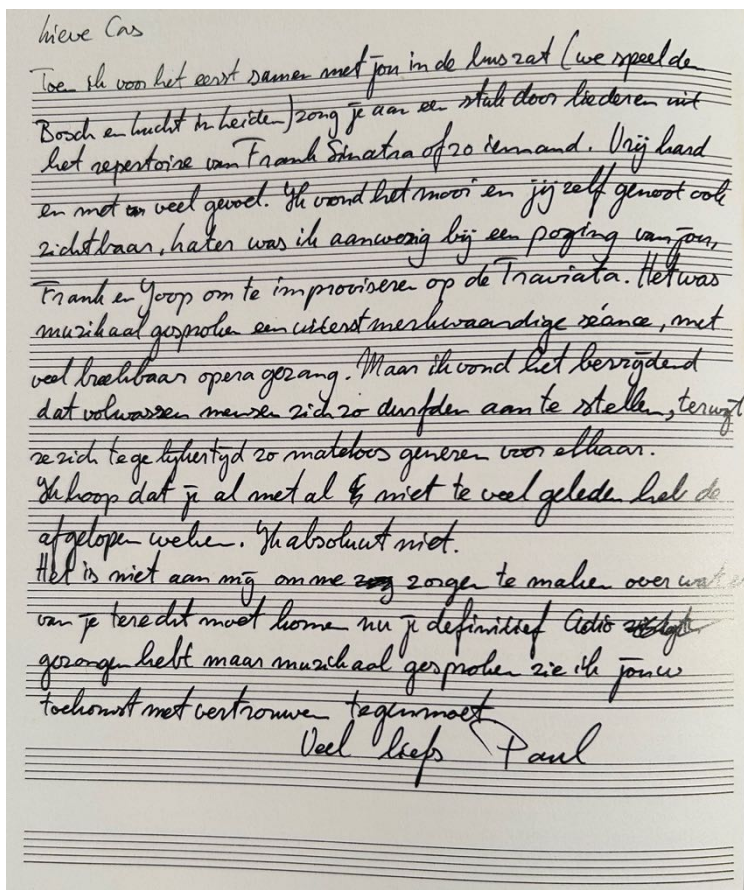 Lieve Cas
Toen ik voor het eerst samen met jou in de bus zat (we speelden
Bosch en lucht in Leiden) zong je aan een stuk door liederen uit
het repertoire van Frank Sinatra of zo iemand. Vrij hard
en met veel gevoel. Ik vond het mooi en jij zelf genoot ook
zichtbaar, later was ik aanwezig bij een poging van jou,
Frank en Joop om te improviseren op de Traviata. Het was
muzikaal gesproken een uiterst merkwaardige séance, met
veel breekbaar opera gezang. Maar ik vond het bevrijdend
dat volwassen mensen zich zo durfden aan te stellen, terwijl
ze zich tegelijkertijd zo mateloos generen voor elkaar.
Ik hoop dat je al met al niet te veel geleden heb de
afgelopen weken. Ik absoluut niet.
Het is niet aan mij om me zorgen te maken over wat er
van je terecht moet komen nu je definitief Adio
gezongen hebt maar muzikaal gesproken zie ik jouw
toekomst met vertrouwen tegemoet
Veel liefs Paul